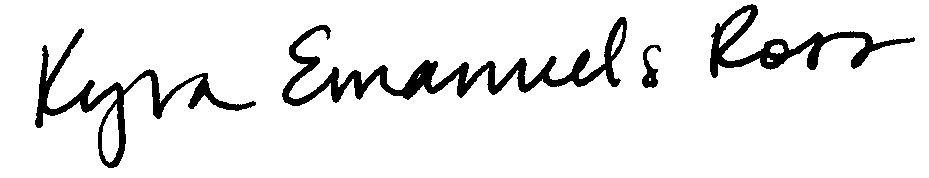 Kyra Emanuels Ross